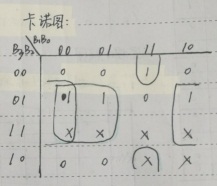 卡诺图:
B₃B₂ B₁B₀ 00 01 11 10
00 0 0 1 0
01 1 1 0 1
11 x x x x
10 0 0 x x